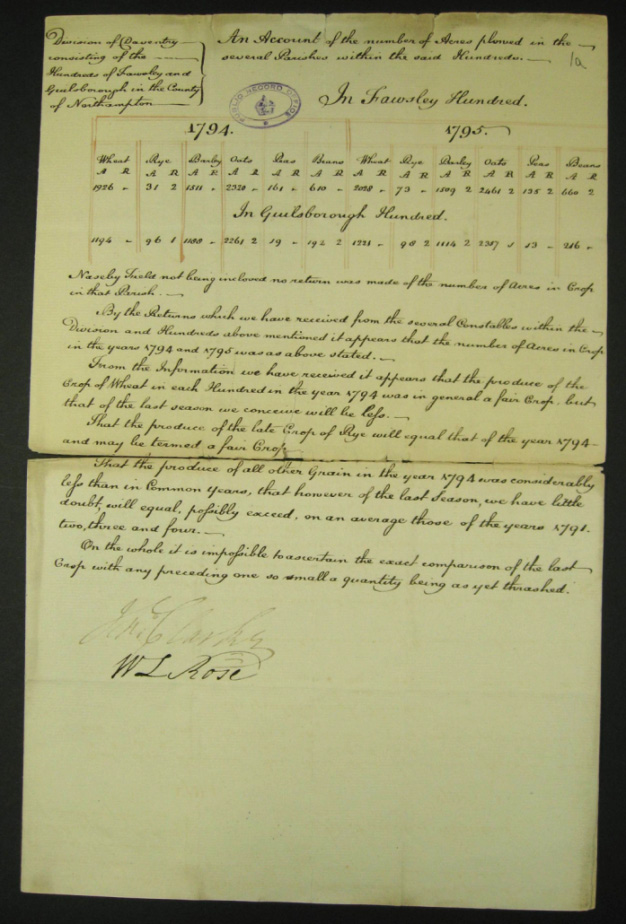 Division of Daventry
consisting of the
Hundreds of Fawsley and
Guilsborough in the County
of Northampton
An Account of the number of Acres plowed in the
several Parishes within the said Hundreds.
1a
PUBLIC RECORD OFFICE
In Fawsley Hundred.
1794. 1795.
Wheat Rye Barley Oats Peas Beans Wheat Rye Barley Oats Peas Beans
A R A R A R A R A R A R A R A R A R A R A R A R
1926 - 31 2 1511 - 2320 - 161 - 610 - 2028 - 73 - 1509 2 2461 2 135 2 660 2
In Guilsborough Hundred.
1194 - 96 1 1188 - 2261 2 19 - 192 2 1221 - 98 2 1114 2 2387 1 13 - 216 -
Naseby Field not being inclosed no return was made of the number of Acres in Crop
in that Parish.
By the Returns which we have received from the several Constables within the
Division and Hundreds above mentioned it appears that the number of Acres in Crop
in the years 1794 and 1795 was as above stated.
From the Information we have received it appears that the produce of the
Crop of Wheat in each Hundred in the year 1794 was in general a fair Crop. but
that of the last season we conceive will be less.
That the produce of the late Crop of Rye will equal that of the year 1794
and may be termed a fair Crop
That the produce of all other Grain in the year 1794 was considerably
less than in Common Years, that however of the last Season, we have little
doubt, will equal, possibly exceed, on an average those of the years 1791.
two, three and four.
On the whole it is impossible to ascertain the exact comparison of the last
Crop with any preceding one so small a quantity being as yet thrashed.
W L Rose